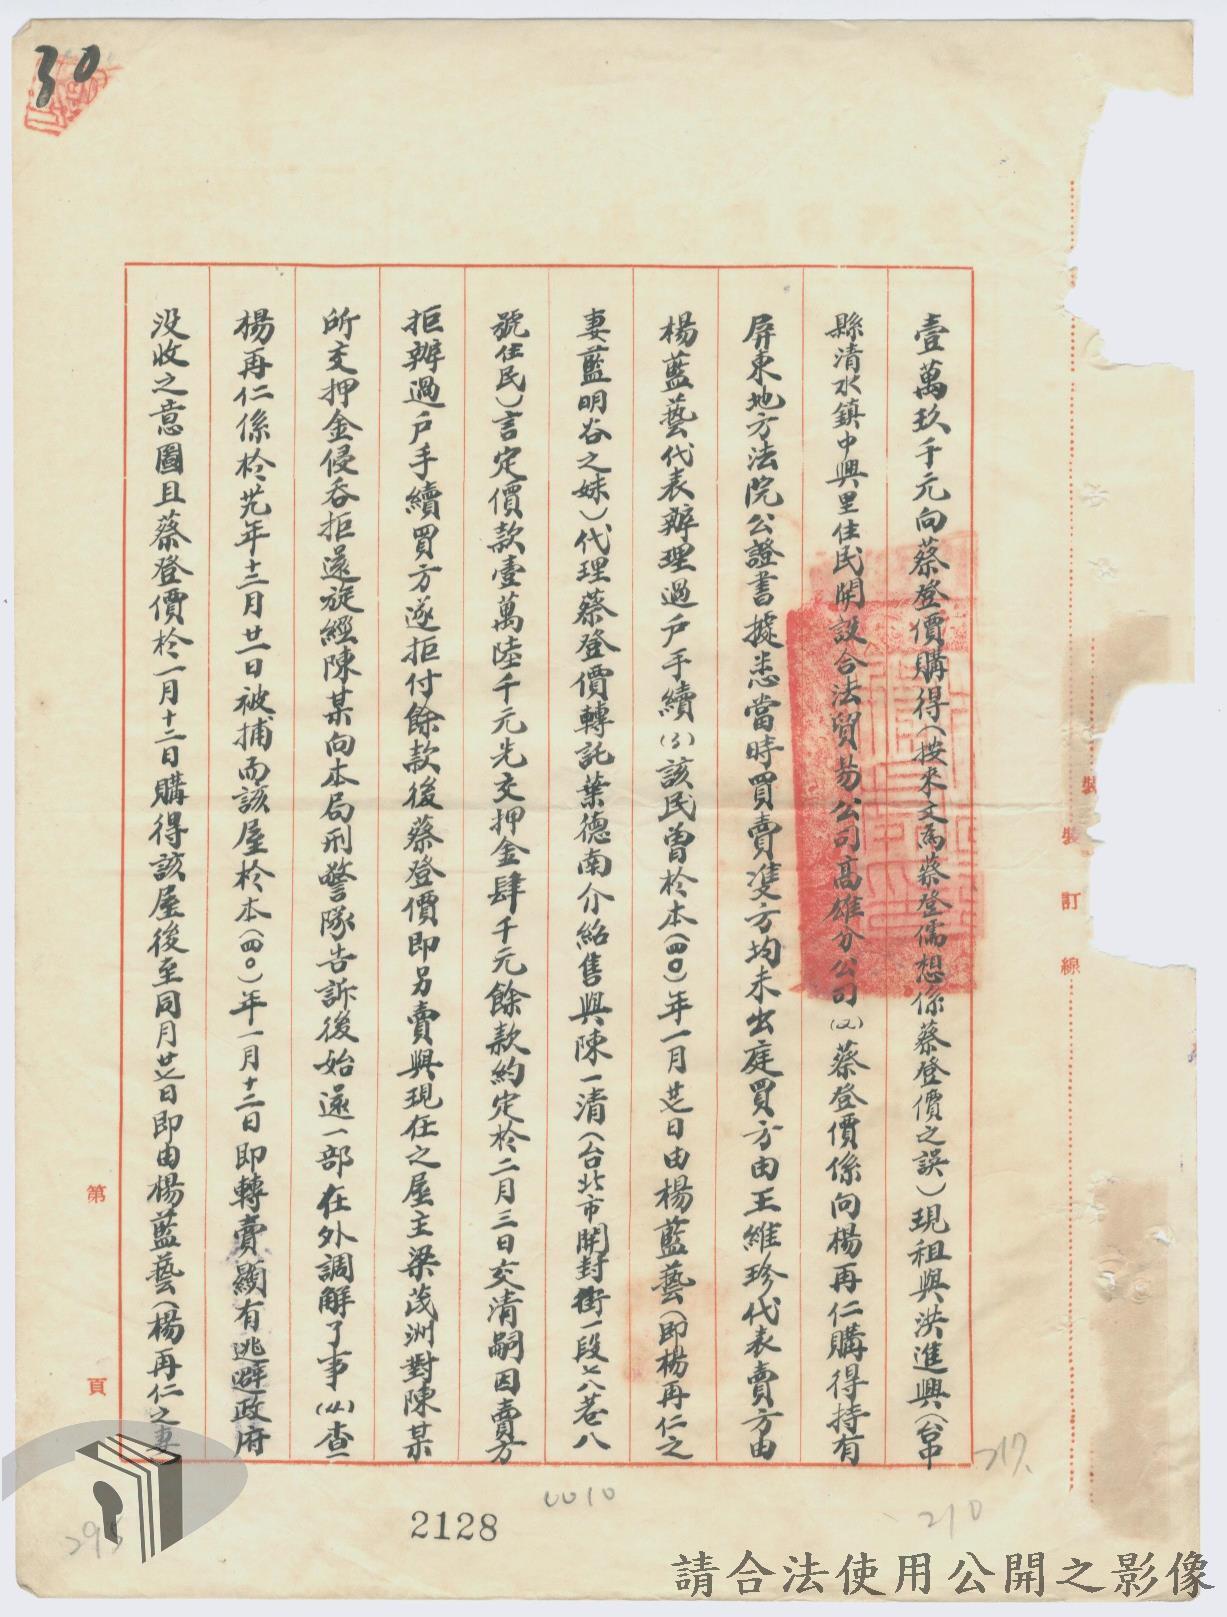 30
壹萬玖千元向蔡登價購得(按來文為蔡登儒想係蔡登價之誤)現租與洪進興(台中
縣清水鎮中興里住民開設合法貿易公司高雄分公司(2)蔡登價係向楊再仁購得持有
屏東地方法院公證書據悉當時買賣雙方均未出庭買方由王維珍代表賣方由
楊藍藝代表辦理過戶手續(3)該民曾於本(四〇)年一月廿七日由楊藍藝(即楊再仁之
妻藍明谷之妹)代理蔡登價轉託葉德南介紹售與陳一清(台北市開封街一段七八巷八
號住民)言定價款壹萬陸千元先交押金肆千元餘款約定於二月三日交清嗣因賣方
拒辦過戶手續買方遂拒付餘款後蔡登價即另賣與現在之屋主梁茂洲對陳某
所交押金侵吞拒還旋經陳某向本局刑警隊告訴後始還一部在外調解了事(4)查
楊再仁係於卅九年十二月廿一日被捕而該屋於本(四〇)年一月十二日即轉賣顯有逃避政府
沒收之意圖且蔡登價於一月十二日購得該屋後至同月廿七日即由楊藍藝(楊再仁之妻
裝
裝
訂
線
第
頁
217
210
0010
2128
295
請合法使用公開之影像